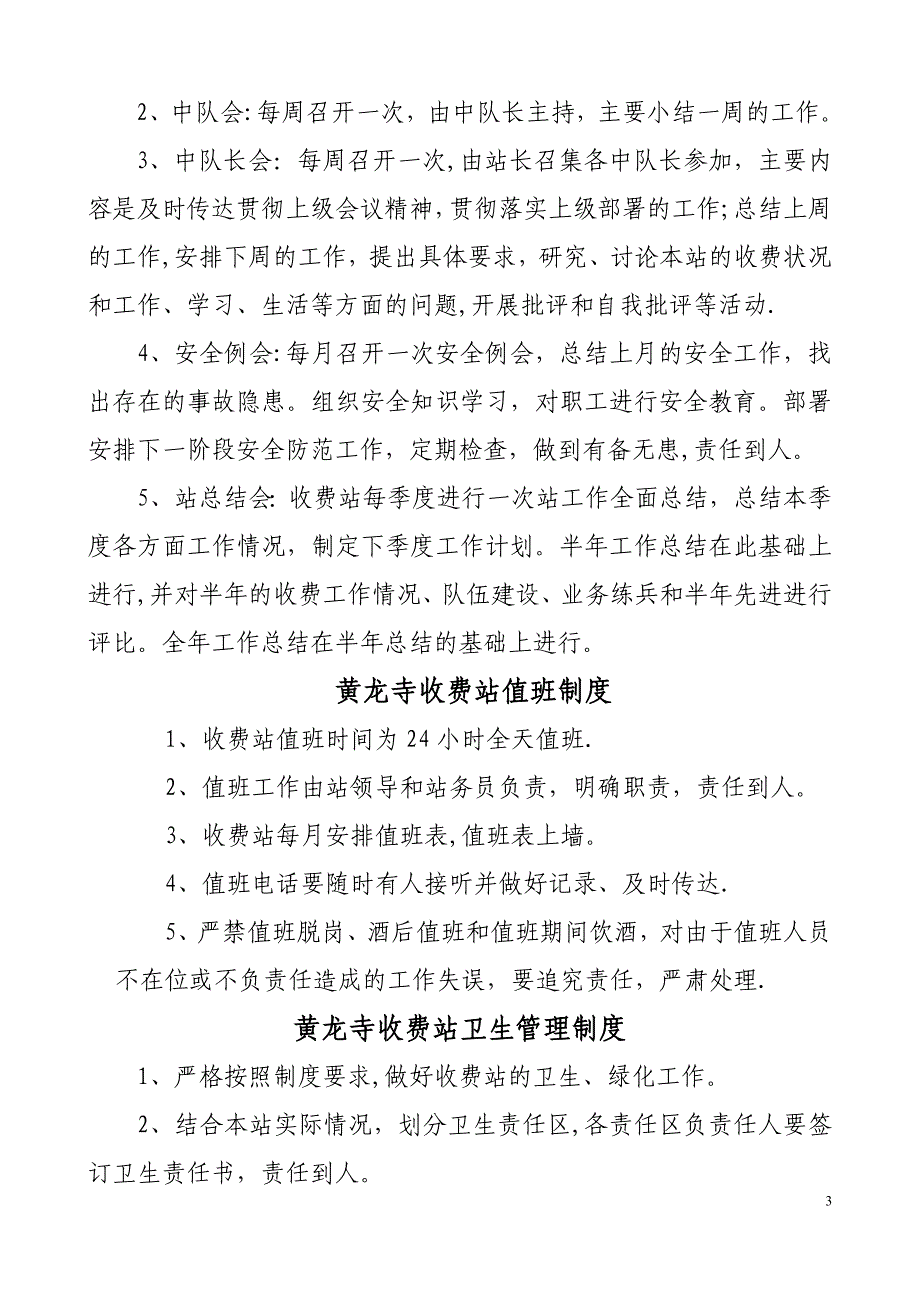 2、中队会:每周召开一次，由中队长主持，主要小结一周的工作。
3、中队长会：每周召开一次,由站长召集各中队长参加，主要内
容是及时传达贯彻上级会议精神，贯彻落实上级部署的工作;总结上周
的工作,安排下周的工作，提出具体要求，研究、讨论本站的收费状况
和工作、学习、生活等方面的问题,开展批评和自我批评等活动.
4、安全例会:每月召开一次安全例会，总结上月的安全工作，找
出存在的事故隐患。组织安全知识学习，对职工进行安全教育。部署
安排下一阶段安全防范工作，定期检查，做到有备无患,责任到人。
5、站总结会：收费站每季度进行一次站工作全面总结，总结本季
度各方面工作情况，制定下季度工作计划。半年工作总结在此基础上
进行,并对半年的收费工作情况、队伍建设、业务练兵和半年先进进行
评比。全年工作总结在半年总结的基础上进行。
黄龙寺收费站值班制度
1、收费站值班时间为24小时全天值班.
2、值班工作由站领导和站务员负责，明确职责，责任到人。
3、收费站每月安排值班表,值班表上墙。
4、值班电话要随时有人接听并做好记录、及时传达.
5、严禁值班脱岗、酒后值班和值班期间饮酒，对由于值班人员
不在位或不负责任造成的工作失误，要追究责任，严肃处理.
黄龙寺收费站卫生管理制度
1、严格按照制度要求,做好收费站的卫生、绿化工作。
2、结合本站实际情况，划分卫生责任区,各责任区负责任人要签
订卫生责任书，责任到人。
3